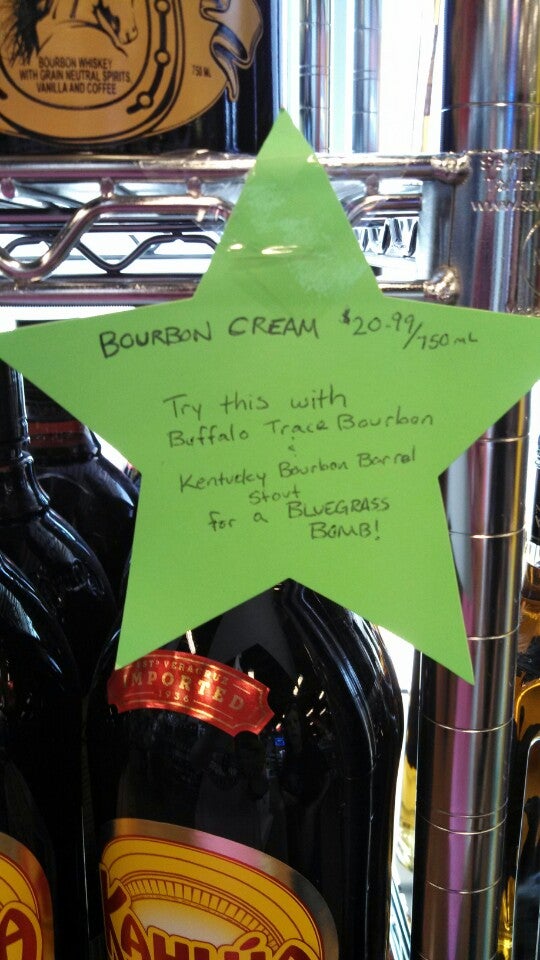 BOURBON WHISKEY
WITH GRAIN NEUTRAL SPIRITS
VANILLA AND COFFEE
750 ML
BOURBON CREAM $20.99/750 mL
Try this with
Buffalo Trace Bourbon
&
Kentucky Bourbon Barrel
Stout
for a BLUEGRASS
BOMB!
VERACRUZ
IMPORTED
1936
KAHLÚA